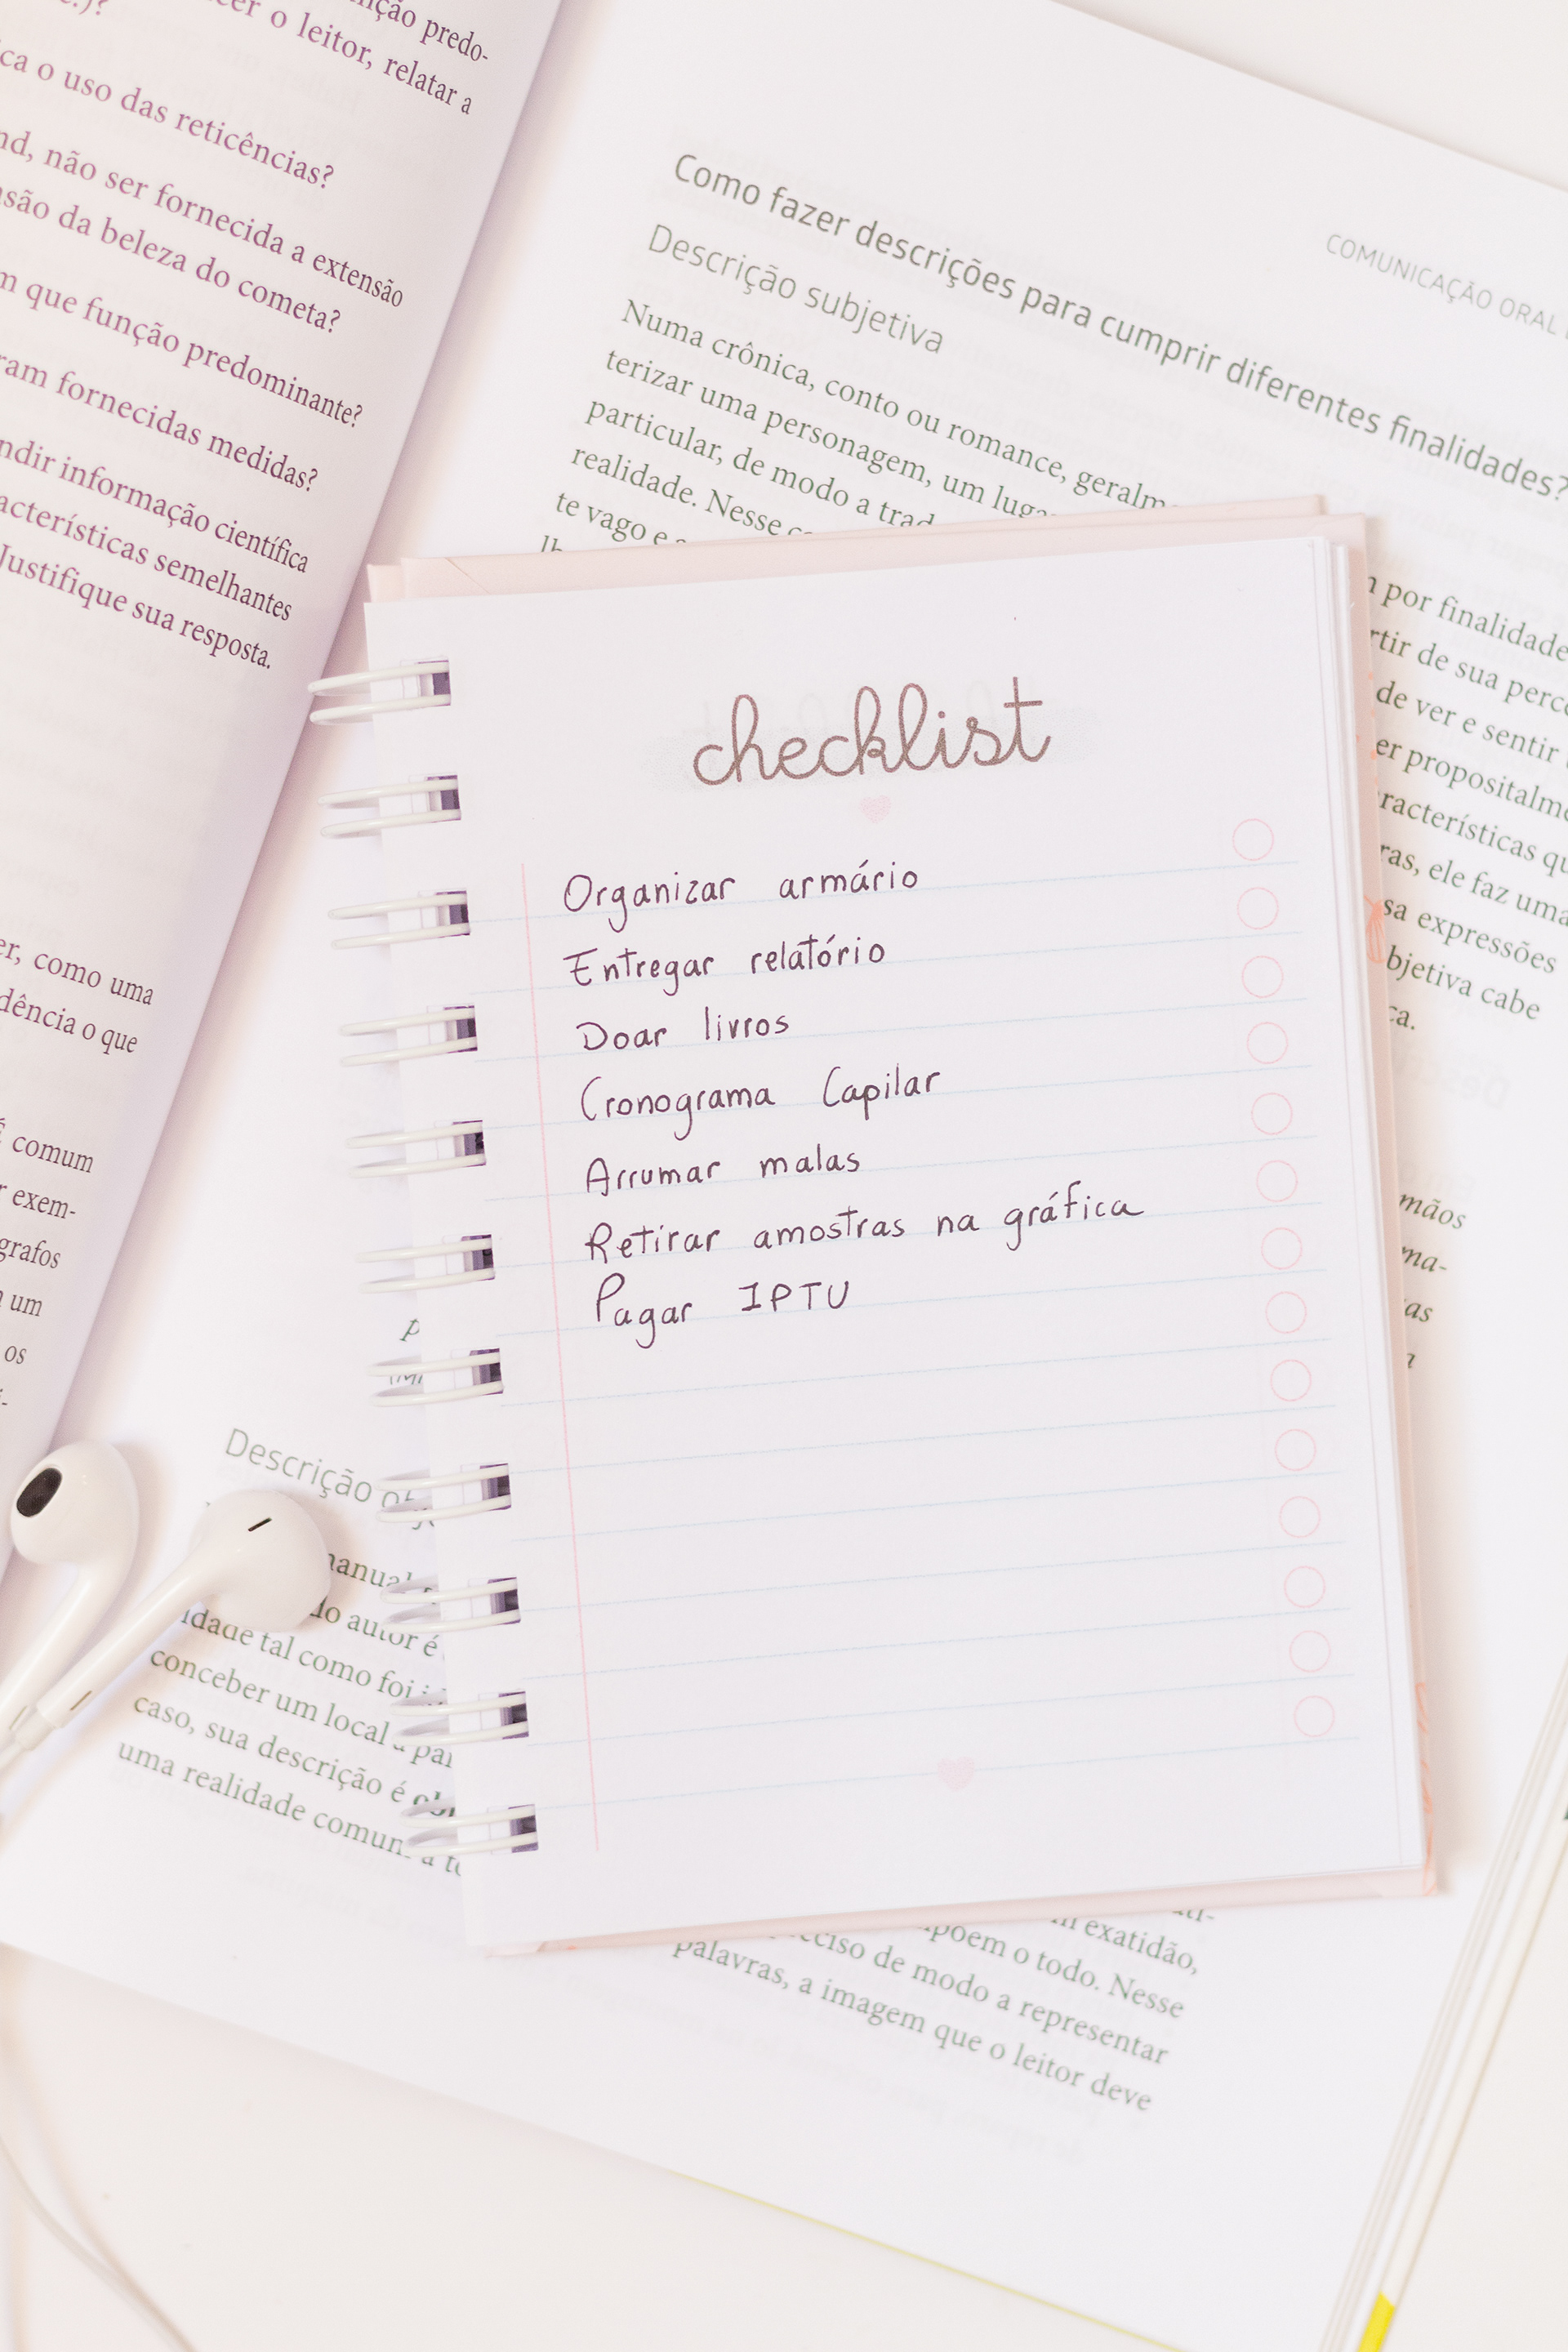 nção predo-
cer o leitor, relatar a
ca o uso das reticências?
nd, não ser fornecida a extensão
nsão da beleza do cometa?
m que função predominante?
ram fornecidas medidas?
ndir informação científica
acterísticas semelhantes
Justifique sua resposta.
er, como uma
dência o que
É comum
r exem-
grafos
um
os
COMUNICAÇÃO ORAL
Como fazer descrições para cumprir diferentes finalidades?
Descrição subjetiva
Numa crônica, conto ou romance, geralm
terizar uma personagem, um luga
particular, de modo a trad
realidade. Nesse
te vago e
por finalidade
rtir de sua perc
de ver e sentir
er propositalme
racterísticas qu
ras, ele faz uma
sa expressões
bjetiva cabe
ca.
mãos
ma-
as
checklist
Organizar armário
Entregar relatório
Doar livros
Cronograma Capilar
Arrumar malas
Retirar amostras na gráfica
Pagar IPTU
Descrição
manual
do autor é
idade tal como foi
conceber um local a par
caso, sua descrição é
uma realidade comum a
exatidão,
põem o todo. Nesse
ciso de modo a representar
palavras, a imagem que o leitor deve